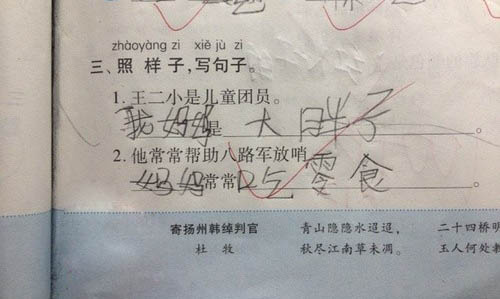 zhàoyàng zi xiě jù zi
三、照 样 子，写句子。
1. 王二小是儿童团员。
我妈妈是 大 胖子 。
2. 他常常帮助八路军放哨。
妈妈常常吃零食 。
寄扬州韩绰判官 青山隐隐水迢迢， 二十四桥明
杜 牧 秋尽江南草未凋。 玉人何处教